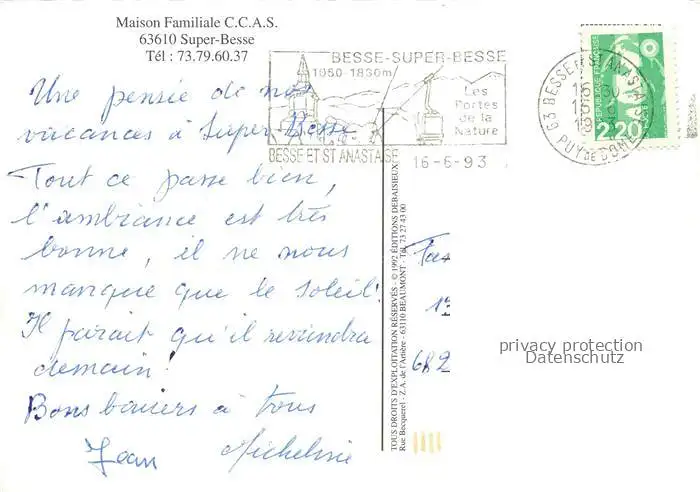 Maison Familiale C.C.A.S.
63610 Super-Besse
Tél : 73.79.60.37
BESSE-SUPER-BESSE
1050-1830m
Les
Portes
de la
Nature
BESSE ET ST ANASTAISE
16-6-93
63 BESSE ET ST ANASTAISE
PUY DE DOME
REPUBLIQUE FRANÇAISE
2,20
Une pensée de nos
vacances à Super-Besse
Tout ce passe bien,
l'ambiance est très
bonne, il ne nous
manque que le soleil!
Il parait qu'il reviendra
demain!
Bons baisers à tous
Jean Micheline
TOUS DROITS D'EXPLOITATION RÉSERVÉS - © 1992 ÉDITIONS DEBAISIEUX
Rue Becquerel - Z.A. de l'Artière - 63110 BEAUMONT - Tél. 73 27 43 00
682
privacy protection
Datenschutz